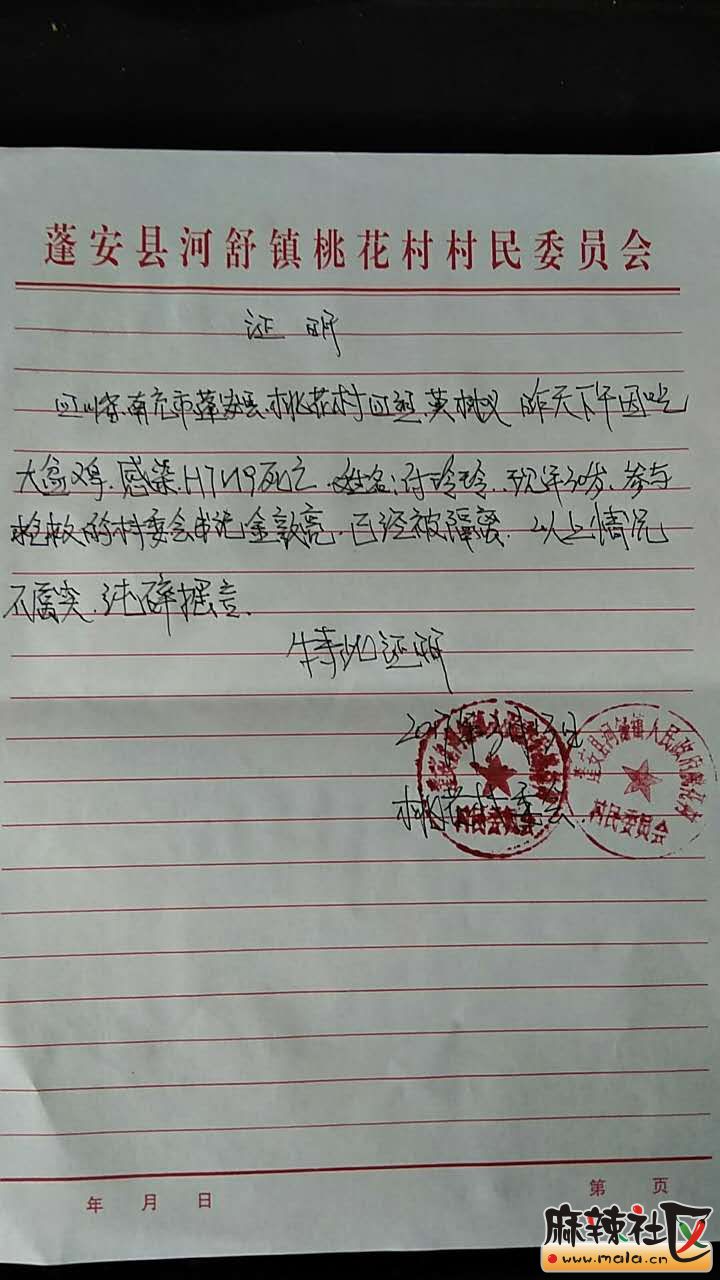 蓬安县河舒镇桃花村村民委员会
证明
四川省南充市蓬安县桃花村四组黄桷 昨天下午因吃
大盘鸡.感染H7N9死亡.姓名:付玲玲.现年30岁.参与
抢救的村委会书记金敦亮.已经被隔离.以上情况
不属实.纯碎摇言.
特此证明
2017年2月 日
桃花村委会.
村民委员会
蓬安县河舒镇人民政府桃花村
村民委员会
年 月 日
第 页
麻辣社区
www.mala.cn